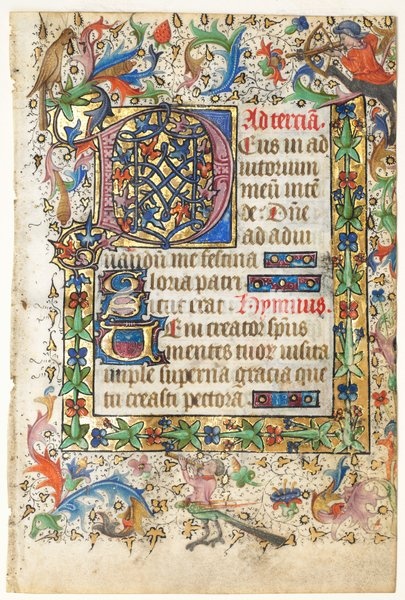 Ad terciā.
Eus in ad
iutorium
meū inte
de: Dn̄e
ad adiu
uandū me festina
Gloria patri
Sicut erat. Hymnus.
Veni creator sp̄us
mentes tuor̄ visita
imple superna gracia que
tu creasti pectora.